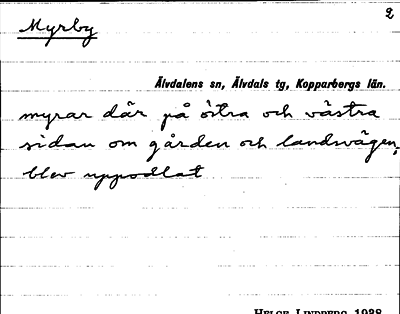 2
Myrby
Älvdalens sn, Älvdals tg, Kopparbergs län.
myrar där på östra och västra
sidan om gården och landsvägen,
blev uppodlat
HELGE LINDBERG 1938